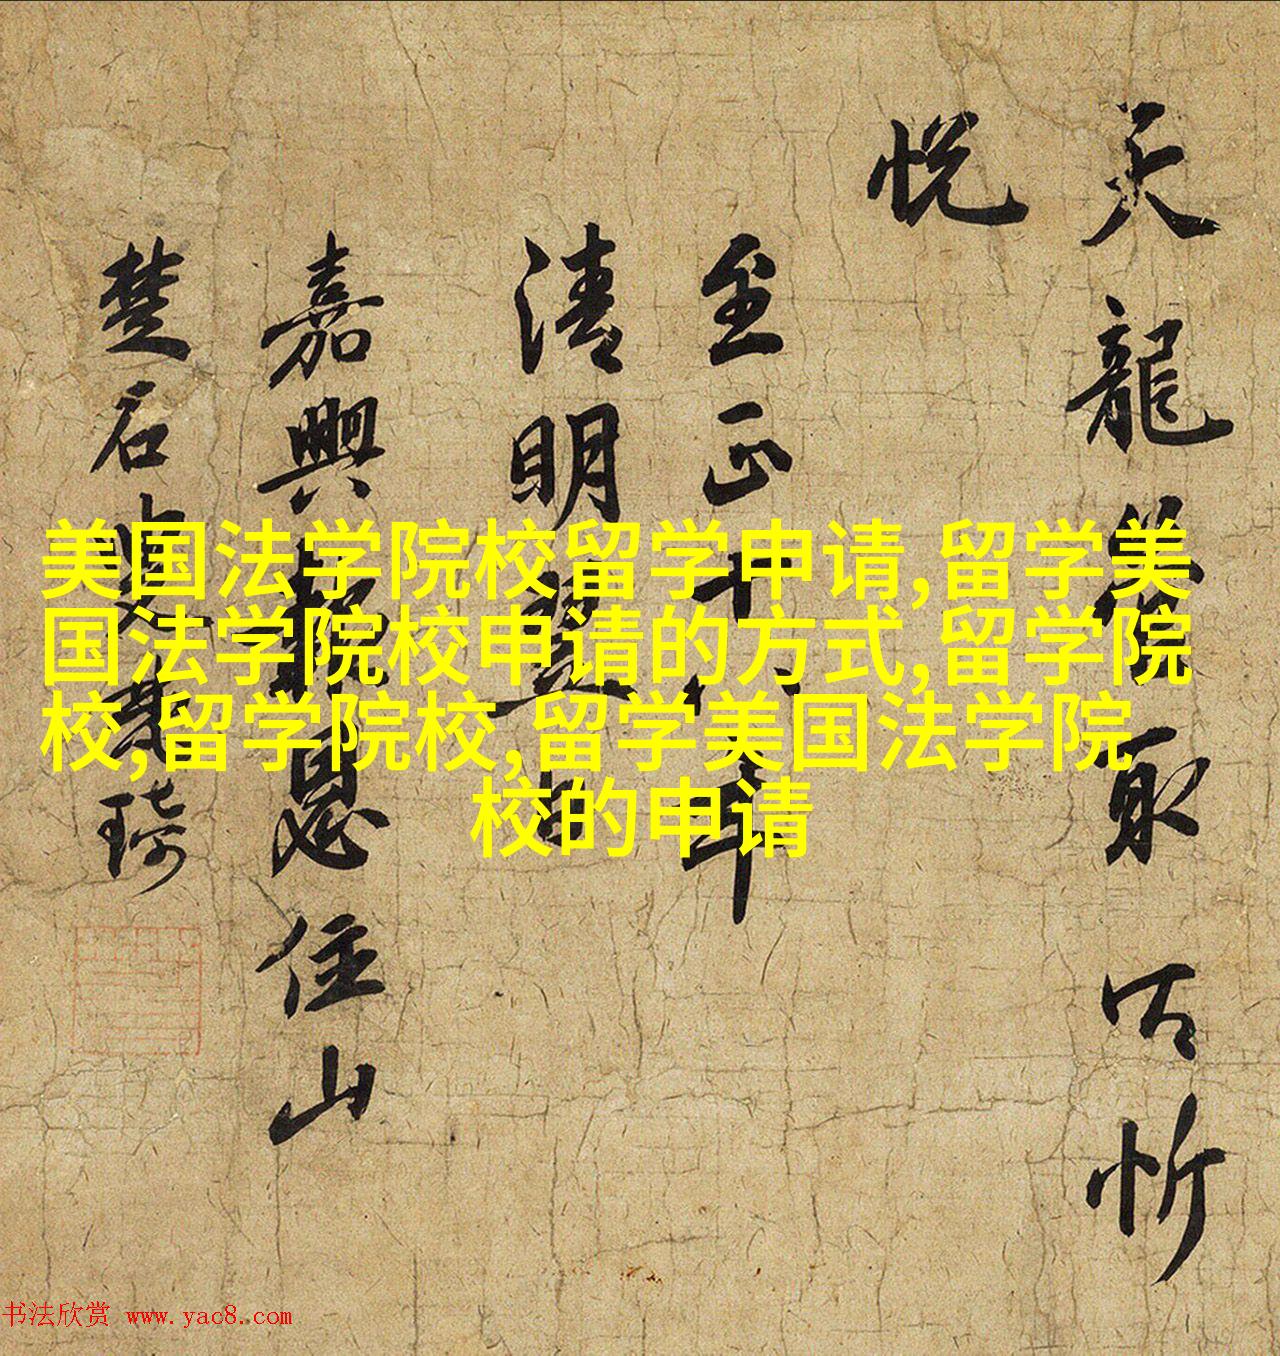 天龍
取以忻
悦
至正十六年
清明
嘉興報恩住山
楚石
琦
美国法学院校留学申请,留学美
国法学院校申请的方式,留学院
校,留学院校,留学美国法学院
校的申请
书法欣赏 www.yac8.com